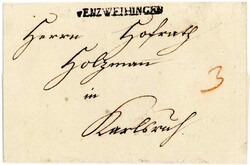 vENZWEIHINGEN
Herrn Hofrath
Holzman
in
Karlsruh.
3